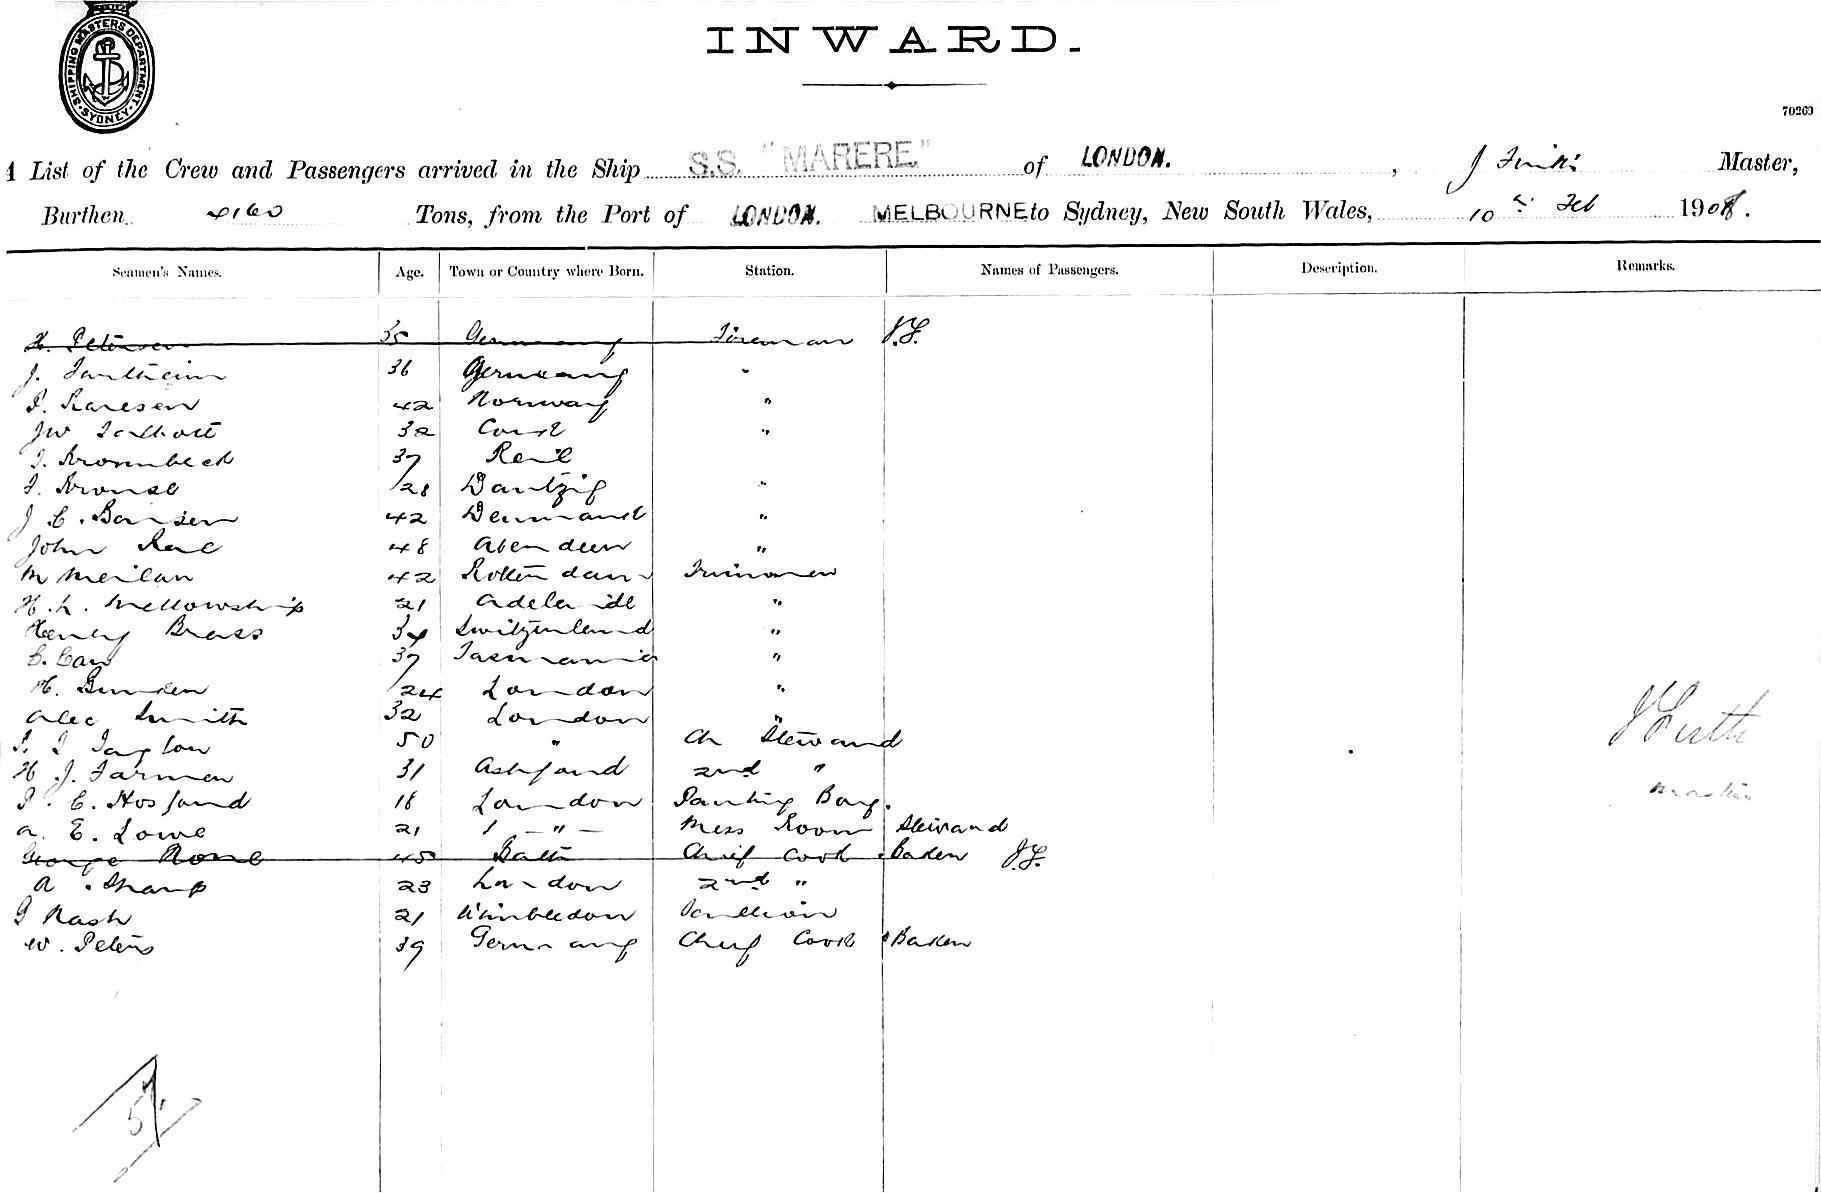 SHIPPING MASTERS DEPARTMENT · SYDNEY ·
INWARD.
70263
List of the Crew and Passengers arrived in the Ship S.S. "MARERE" of LONDON. , J Master,
Burthen 4160 Tons, from the Port of LONDON. MELBOURNE to Sydney, New South Wales, 10th Feb 1908.
Seamen's Names. Age. Town or Country where Born. Station. Names of Passengers. Description. Remarks.
H. Petersen 35 Germany Fireman J.F.
J. 36 Germany "
P. Karlsen 42 Norway "
JW Talbott 32 "
J. Krombeck 37
F. 28 Dantzig "
J C. 42 Denmark "
John 48 Aberdeen "
M 42 Rotterdam Trimmer
H. L. Mellowship 21 Adelaide "
Henry Brass 34 Switzerland "
C. 37 Tasmania "
H. 24 London "
Alec Smith 32 London "
50 " Ch Steward
H J. Farmer 31 Ashford 2nd "
P. C. Hosford 18 London Pantry Boy.
A. E. Lowe 21 - " - Mess Room Steward
George 45 Bath Chief Cook & Baker J.F.
A. Sharp 23 London 2nd "
G Nash 21 Wimbledon Scullion
W. Peters 39 Germany Chief Cook & Baker
J Firth
Master